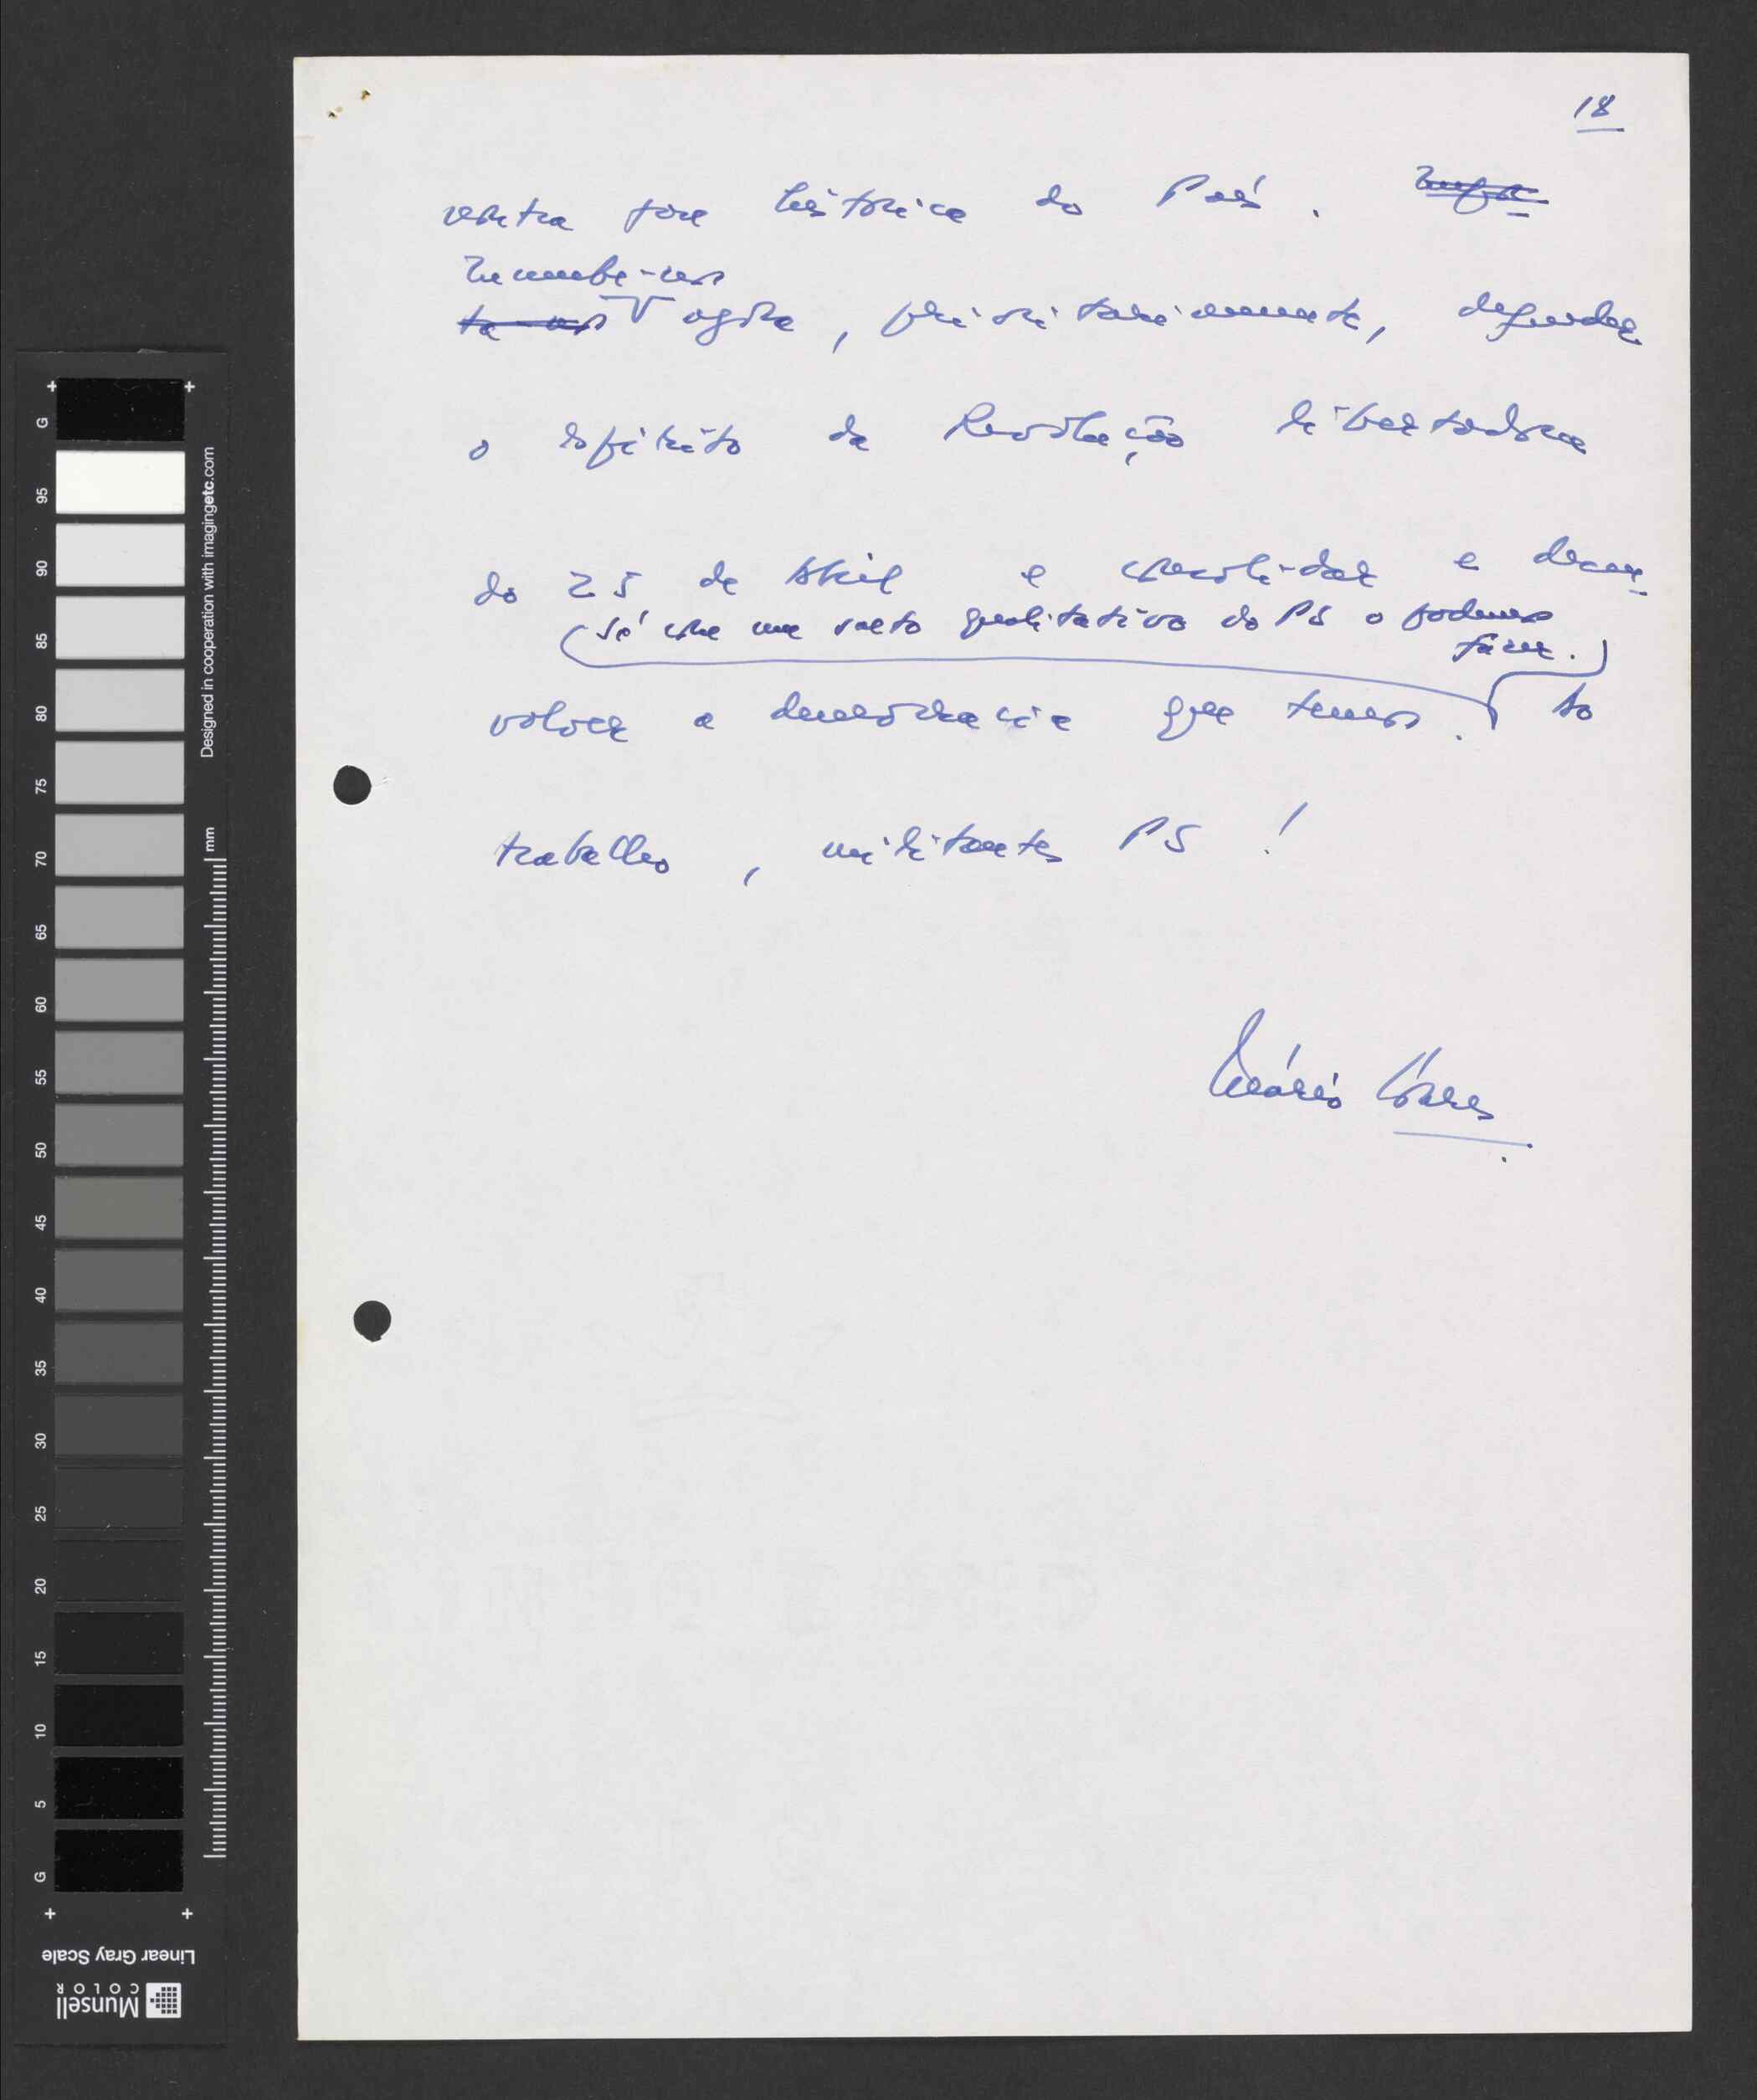 18
outra fase histórica do País. Impor-
Incumbe-nos
ta-nos agora, prioritariamente, defender
o espírito da Revolução libertadora
do 25 de Abril e consolidar e desen-
(Só com um salto qualitativo do PS o podemos
fazer.)
volver a democracia que temos. Ao
trabalho, militantes PS!
Mário Soares
G
95
90
85
80
75
70
65
60
55
50
45
40
35
30
25
20
15
10
5
G
mm
Designed in cooperation with imagingetc.com
Linear Gray Scale
Munsell
COLOR